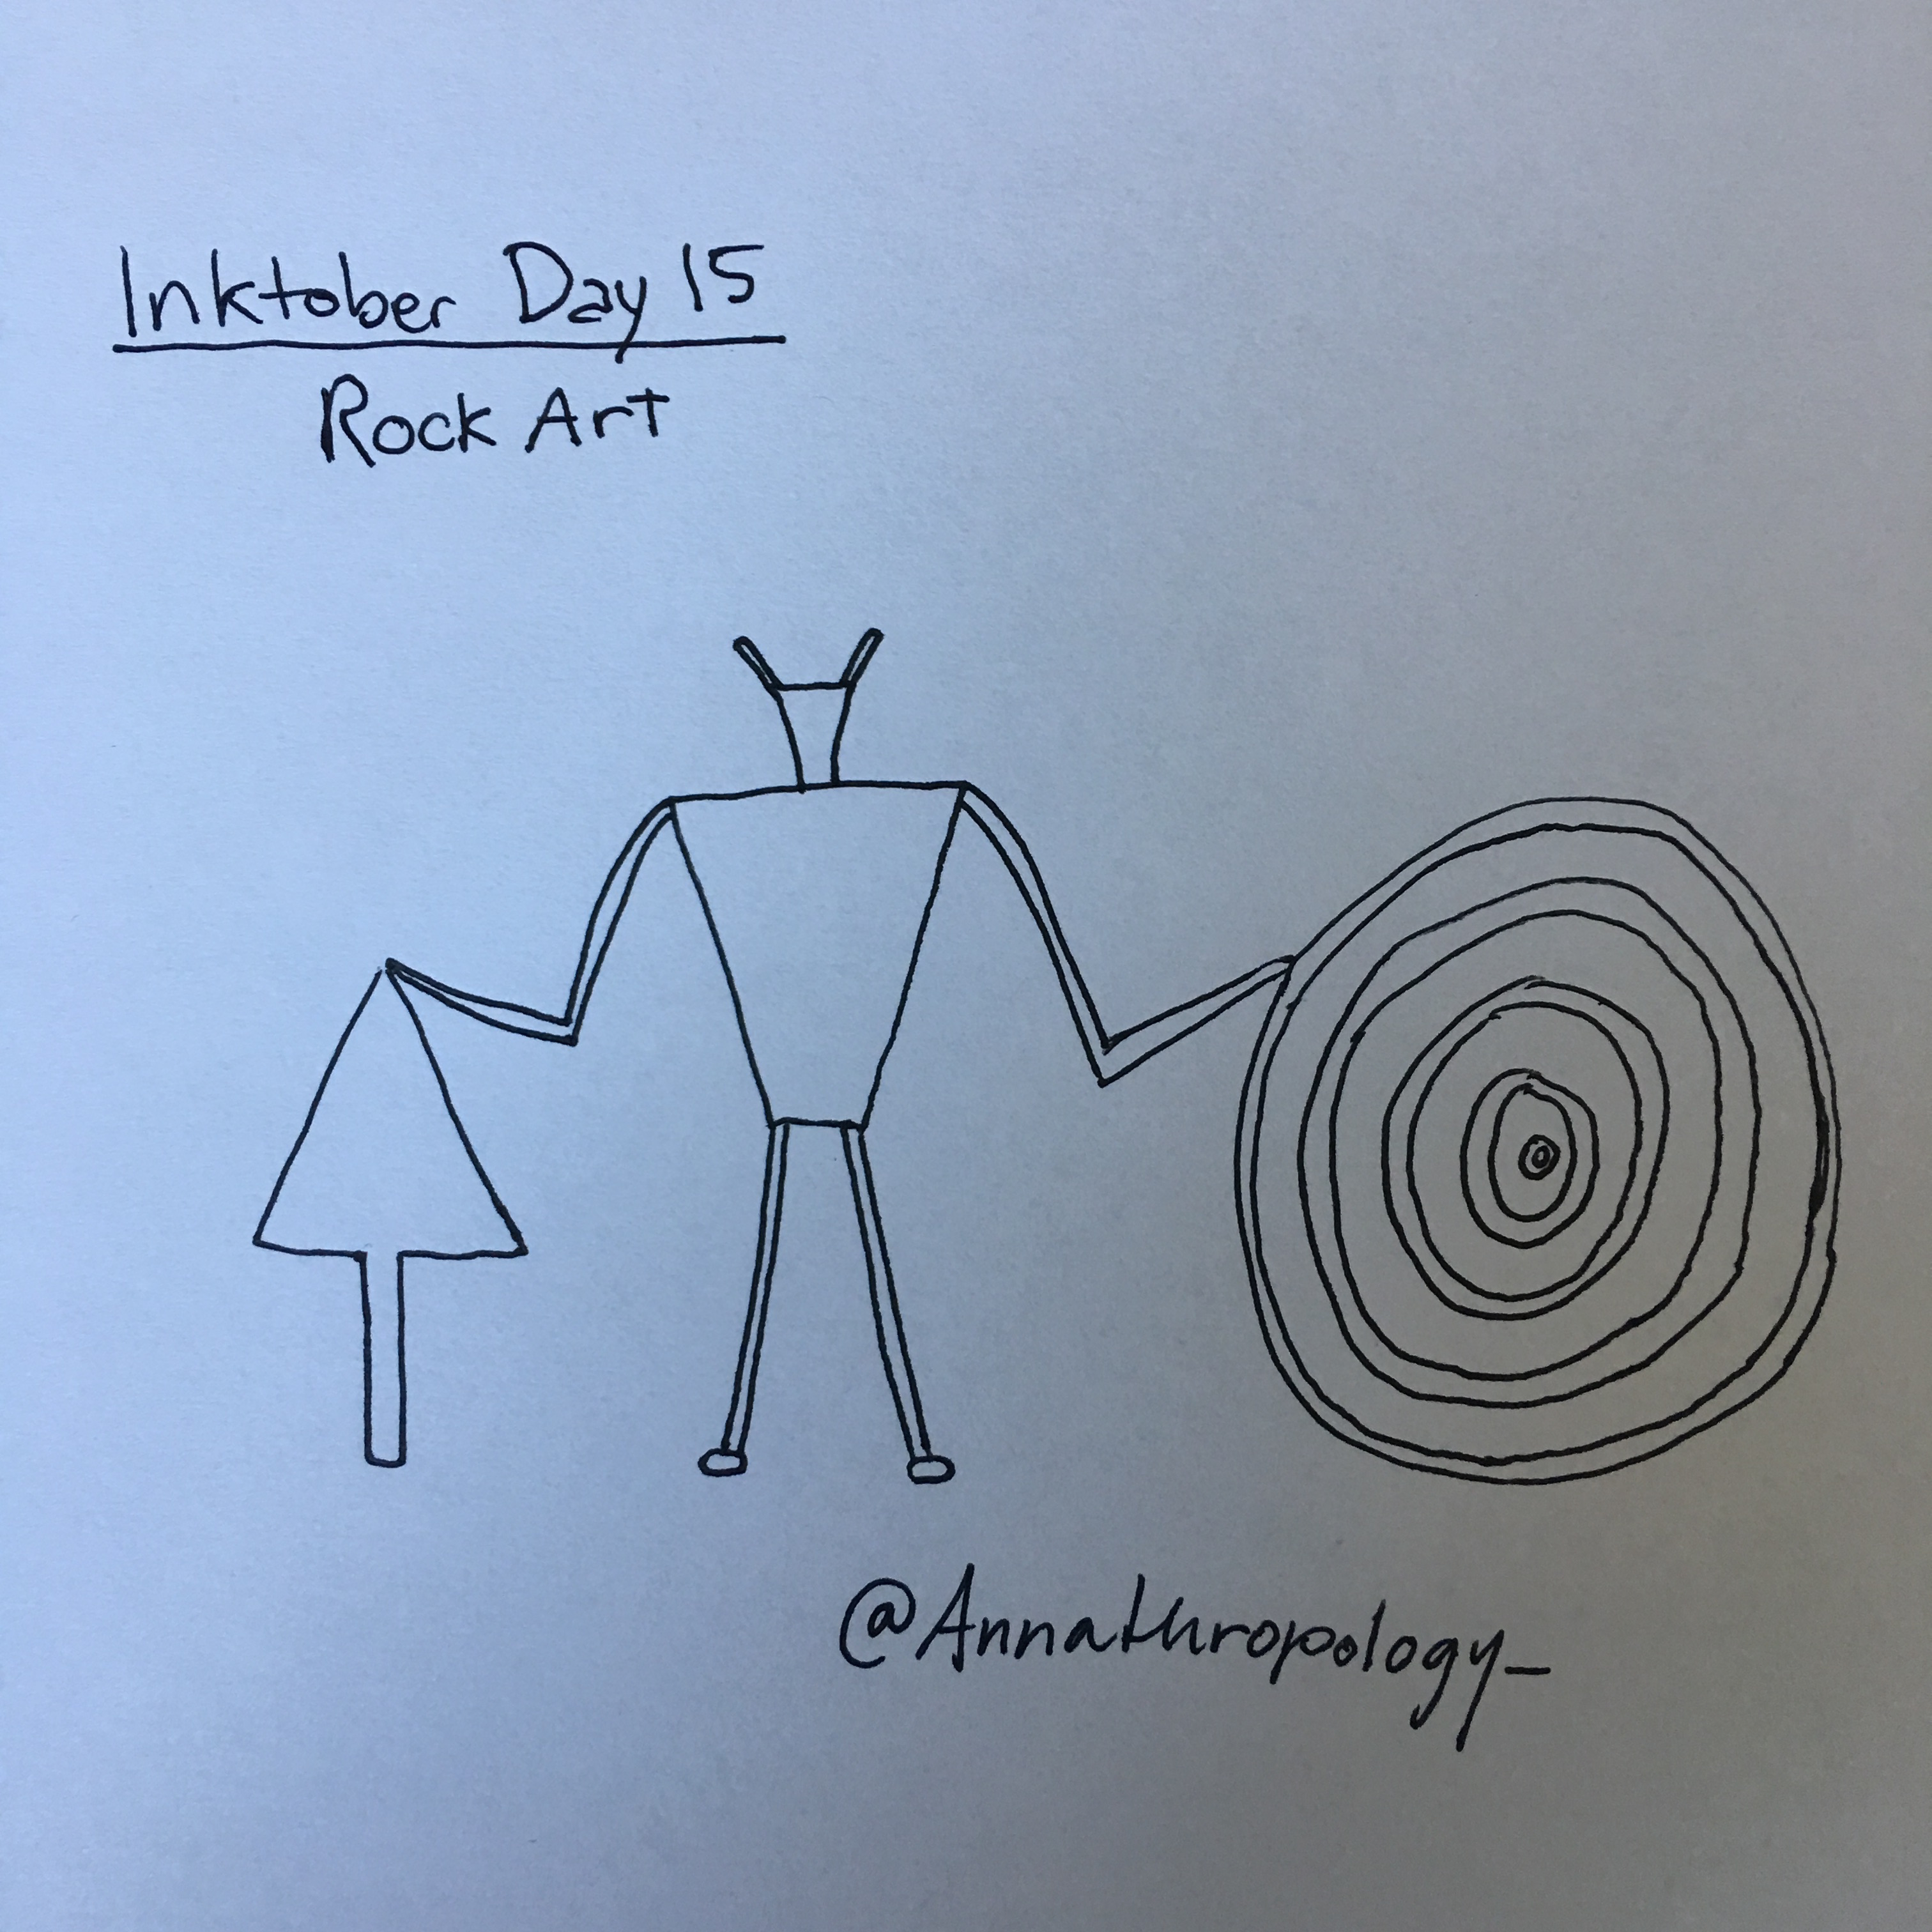 Inktober Day 15
Rock Art
@Annathropology_